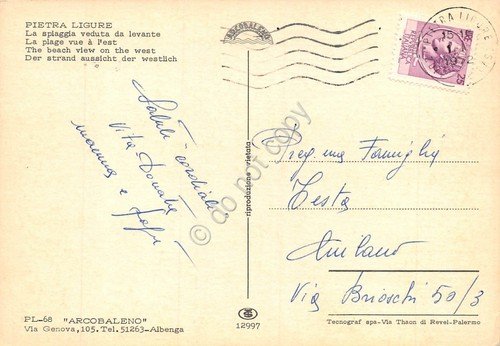 PIETRA LIGURE
La spiaggia veduta da levante
La plage vue à l'est
The beach view on the west
Der strand aussicht der westlich
ARCOBALENO
PIETRA LIGURE
Saluti cordiali
Vita Donata
mamma e
riproduzione vietata
Preg.ma Famiglia
Testa
Milano
Via Brioschi 50/3
do not copy
PL-68 "ARCOBALENO"
Via Genova,105.Tel.51263-Albenga
12997
Tecnograf spa-Via Thaon di Revel-Palermo